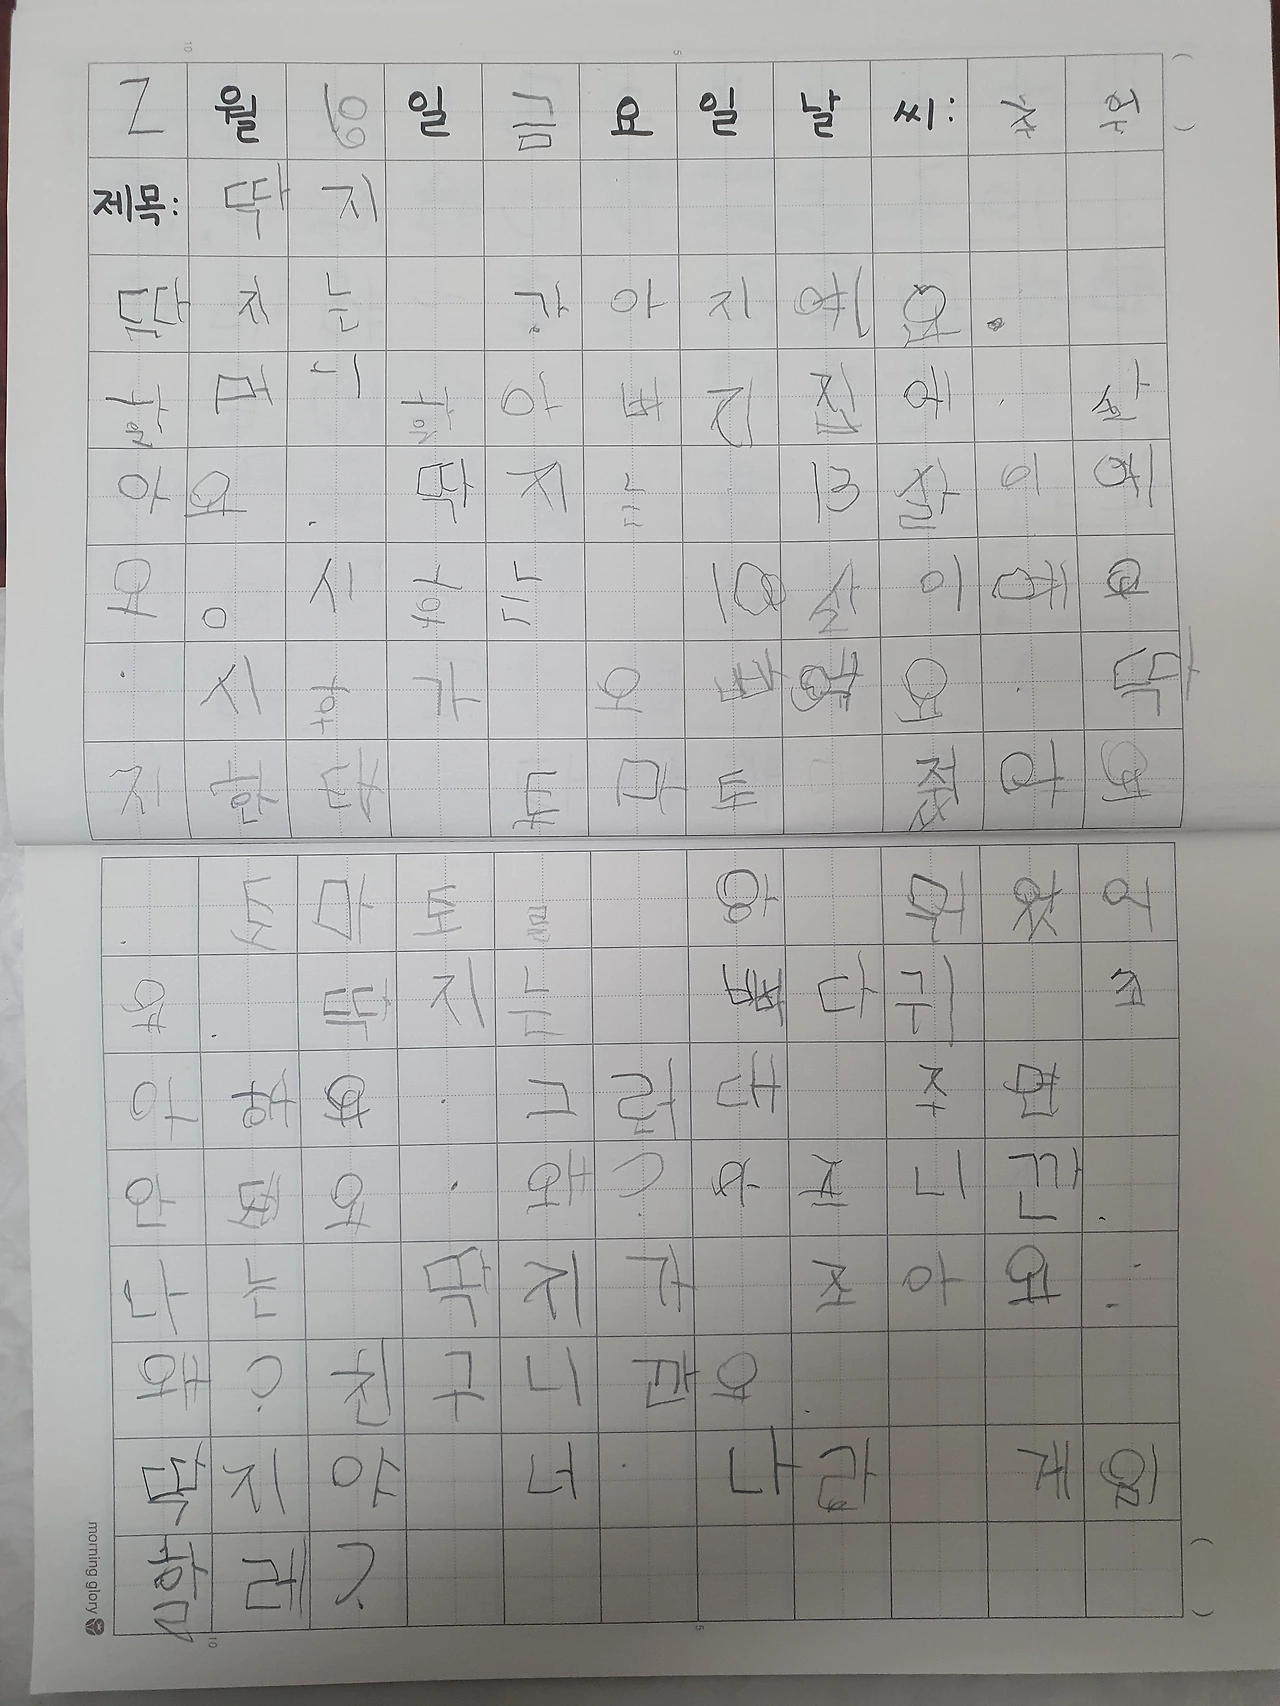 7월 일 금요일 날씨:
제목: 딱지
딱지는 강아지예요.
할머니 할아버지 집에 살
아요. 딱지는 13살이예
요. 시하는 10살이예요
. 시하가 오빠예요. 딱
지한탑 토마토 줬어요
. 토마토를 안 먹었어
요. 딱지는 뼈다귀 조
아해요. 그런대 주면
안 돼요. 왜? 아프니깐.
나는 딱지가 조아요.
왜? 친구니깐요.
딱지야 너. 나랑 게임
할레?
morning glory